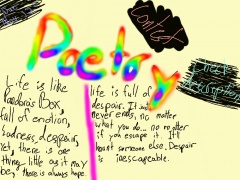 Poetry
Contest
Life is like
Pandora's Box,
full of emotion,
sadness, despair,
Yet, there is one
thing little as it may
be, there is always hope.
life is full of
despair. It
never ends, no matter
what you do... no matter
if you escape it. It'll
haunt someone else. Despair
is inescapable.